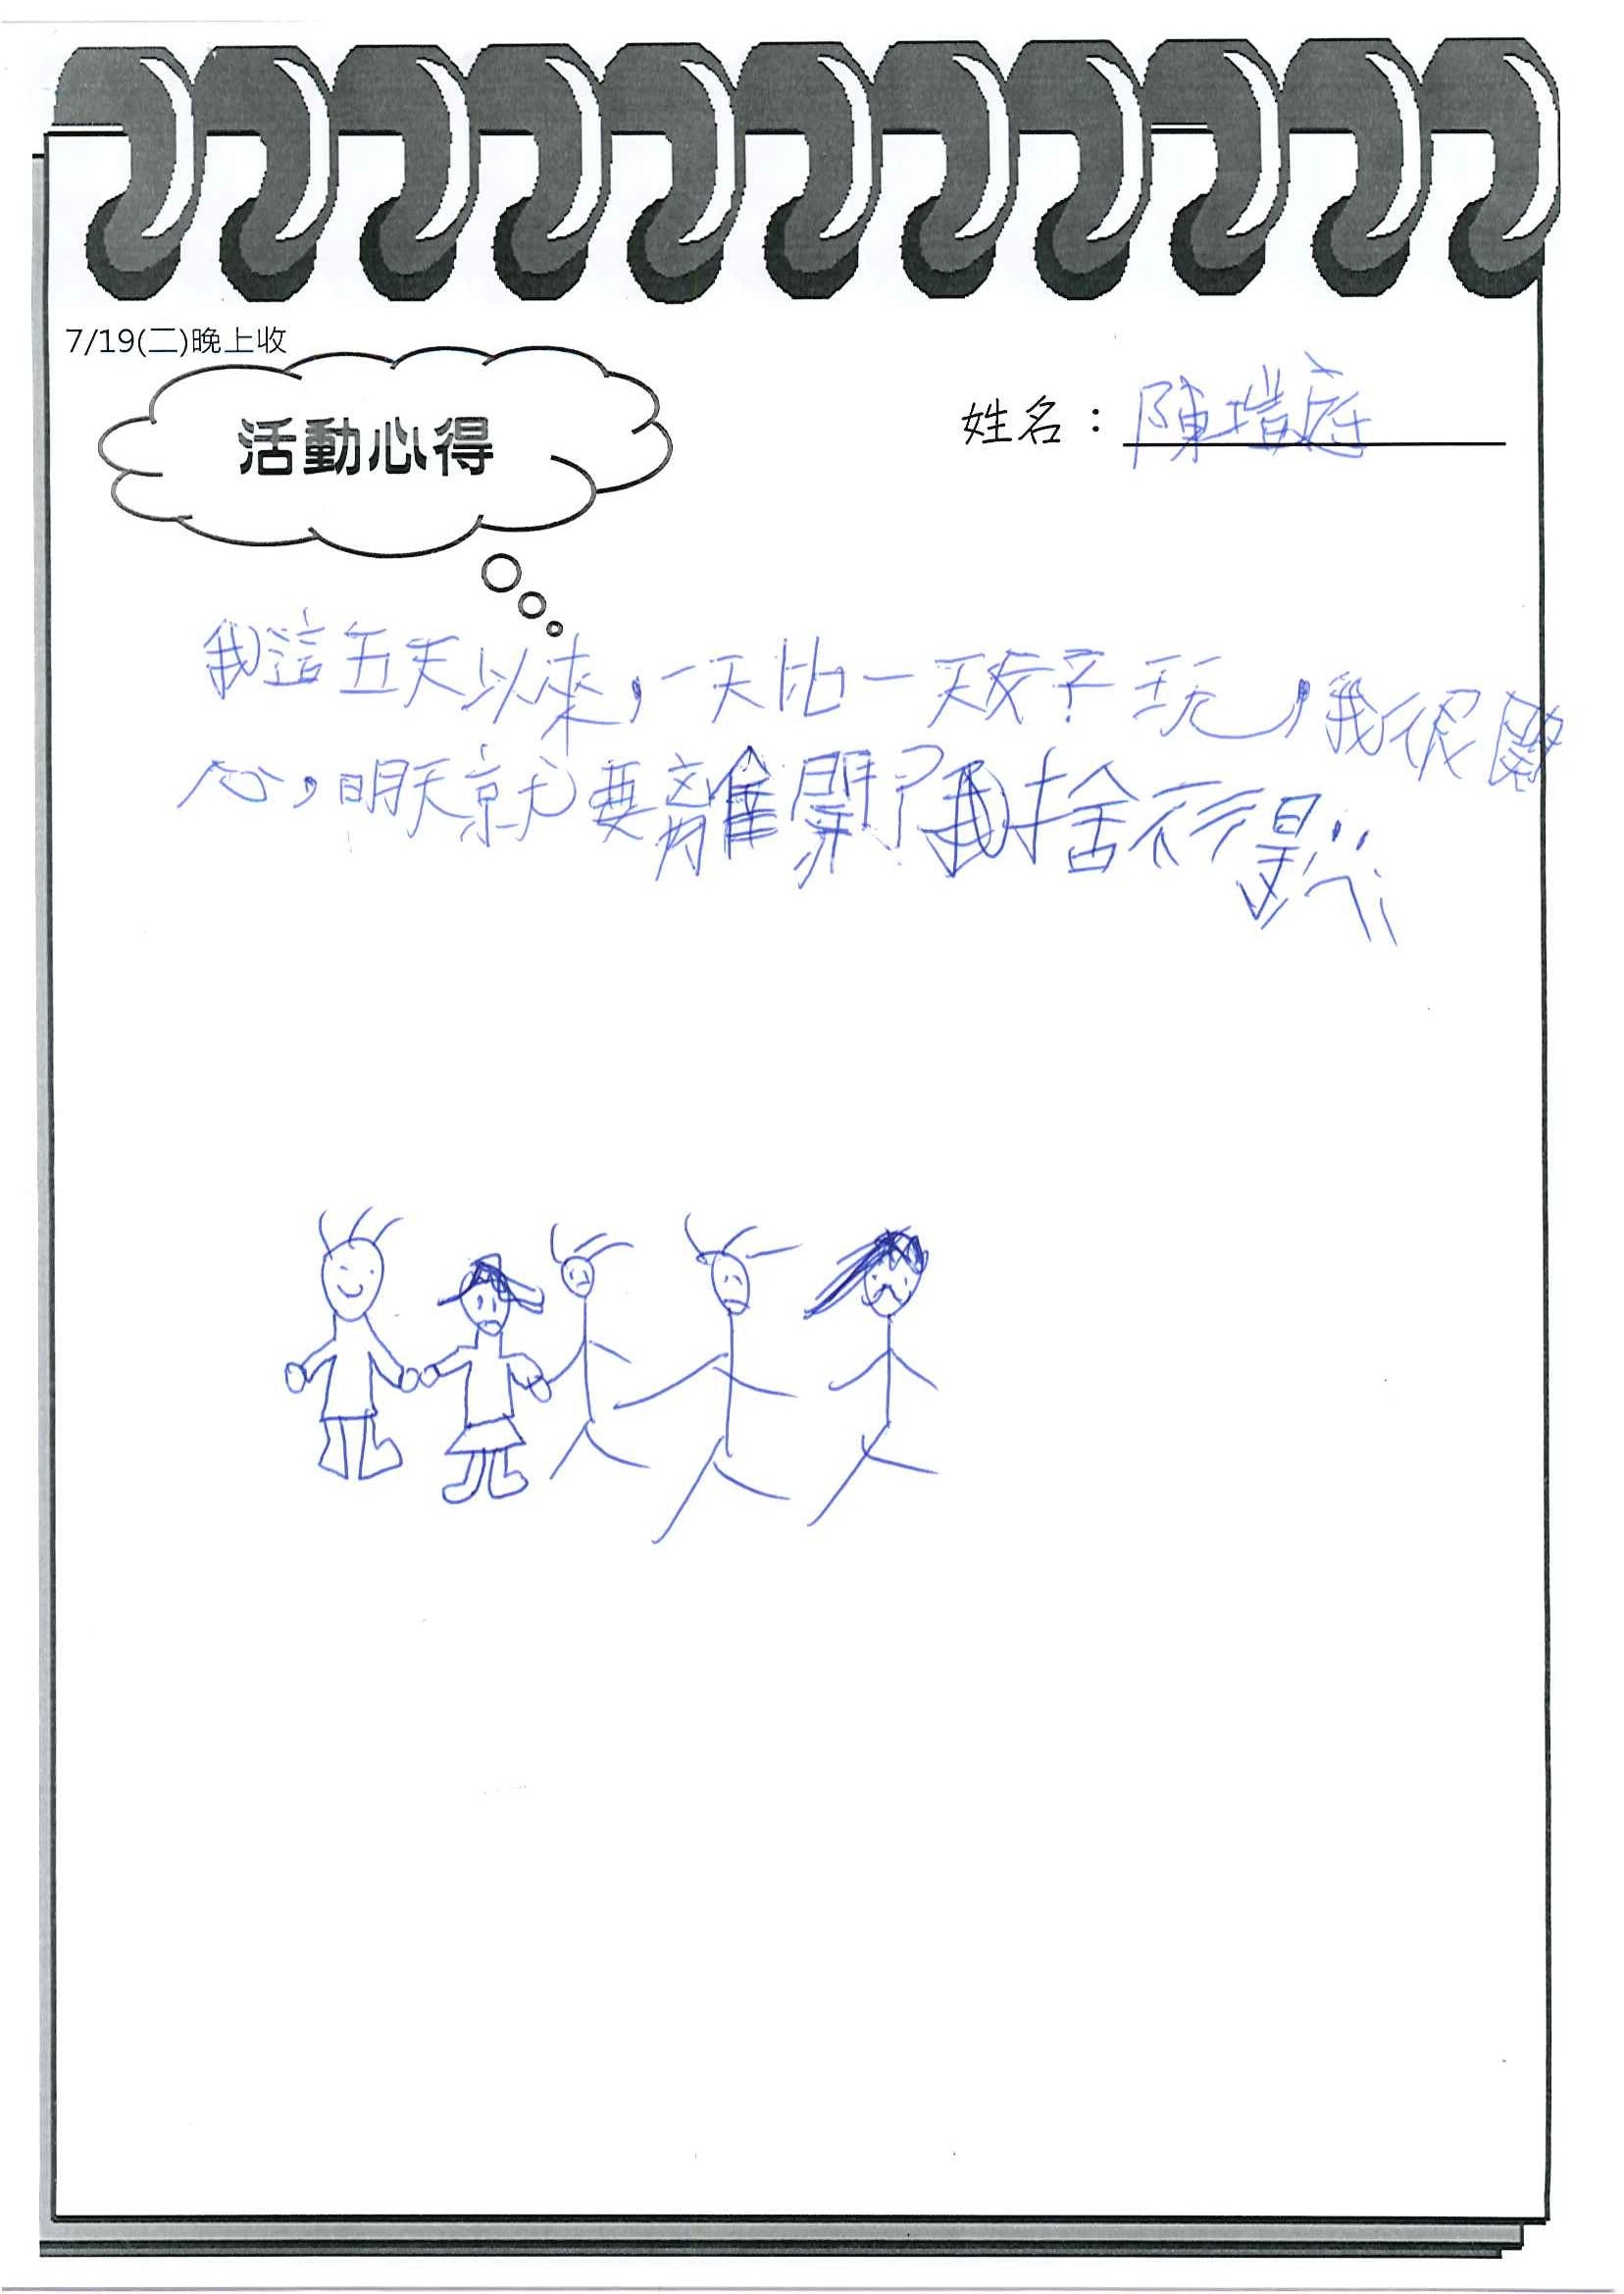 7/19(二)晚上收
活動心得
姓名：陳塏庭
我這五天以來，一天比一天好玩，我很開
心，明天就要離開了我捨不得